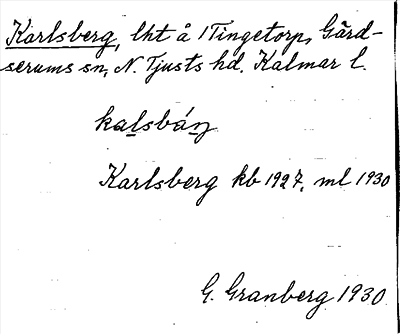 Karlsberg, lht å 1 Tingetorp, Gärd-
serums sn, N. Tjusts hd. Kalmar l.
kalsbáŋ
Karlsberg kb 1927, ml 1930
G. Granberg 1930